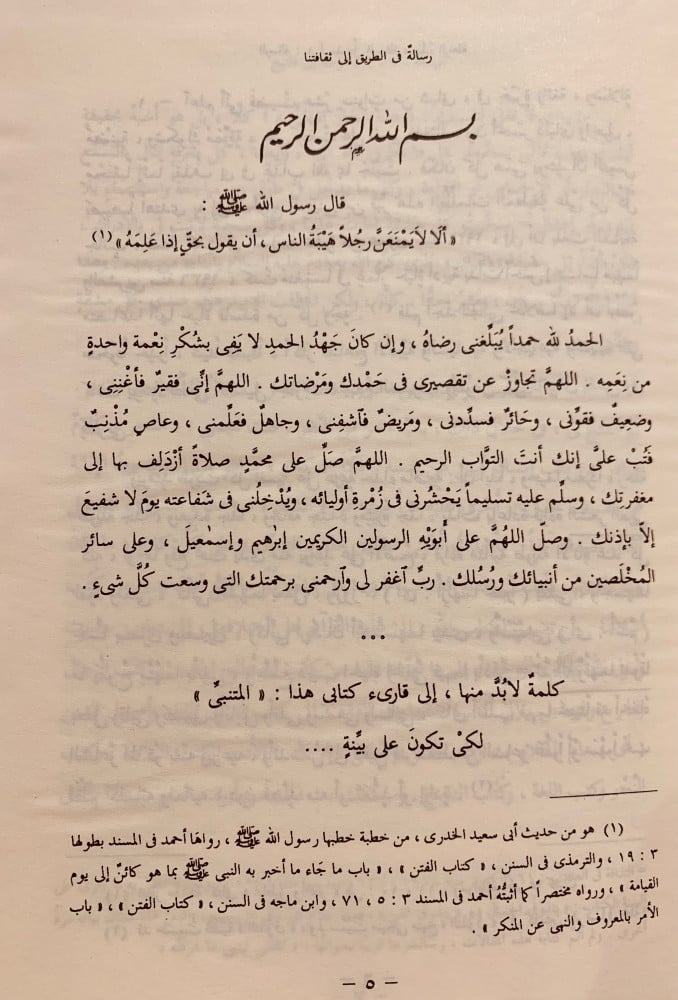 رسالةٌ فى الطريق إلى ثقافتنا
بسم الله الرحمن الرحيم
قال رسول الله ﷺ :
« ألَا لَا يَمْنَعَنَّ رجُلاً هَيْبَةُ الناس ، أن يقول بحَقٍّ إذا عَلِمَهُ » (١)
الحمدُ لله حمداً يُبَلِّغنى رضاهُ ، وإن كانَ جَهْدُ الحمدِ لا يَفِى بشُكْرِ نِعْمة واحدةٍ
من نِعَمِه . اللهمَّ تجاوزْ عن تقصيرى فى حَمْدك ومَرْضاتك . اللهمَّ إنِّى فقيرٌ فأغْنِنِى ،
وضعِيفٌ فقوِّنى ، وحَائرٌ فسدِّدنى ، ومَريضٌ فٱشفِنى ، وجاهلٌ فعَلِّمنى ، وعاصٍ مُذْنِبٌ
فَتُبْ علىَّ إنك أنتَ التواب الرحيم . اللهمَّ صَلِّ على محمَّدٍ صلاةً أزْدَلِف بها إلى
مغفرتِك ، وسلِّم عليه تسليماً يَحْشُرنى فى زُمْرةِ أوليائه ، ويُدْخِلُنى فى شَفاعته يومَ لا شفيعَ
إلاَّ بإذنك . وصلّ اللهُمَّ على أبوَيْهِ الرسولين الكريمين إبرٰهيم وإسمٰعيلَ ، وعلى سائر
المُخْلَصين من أنبيائك ورُسُلك . ربِّ ٱغفر لى وٱرحمنى برحمتك التى وسعت كُلَّ شىءٍ .
...
كلمةٌ لابُدَّ منها ، إلى قارىء كتابى هذا : « المتنبىِّ »
لكىْ تكونَ على بيِّنةٍ ....
(١) هو من حديث أبى سعيد الخدرى ، من خطبة خطبها رسول الله ﷺ ، رواهَا أحمد فى المسند بطولها
٣ : ١٩ ، والترمذى فى السنن ، « كتاب الفتن » ، « باب ما جَاء ما أخبر به النبى ﷺ بما هو كائنٌ إلى يوم
القيامة » ، ورواه مختصراً كما أثبتُّهُ أحمد فى المسند ٣ : ٥ ، ٧١ ، وابن ماجه فى السنن ، « كتاب الفتن » ، « باب
الأمر بالمعروف والنهى عن المنكر » .
— ٥ —